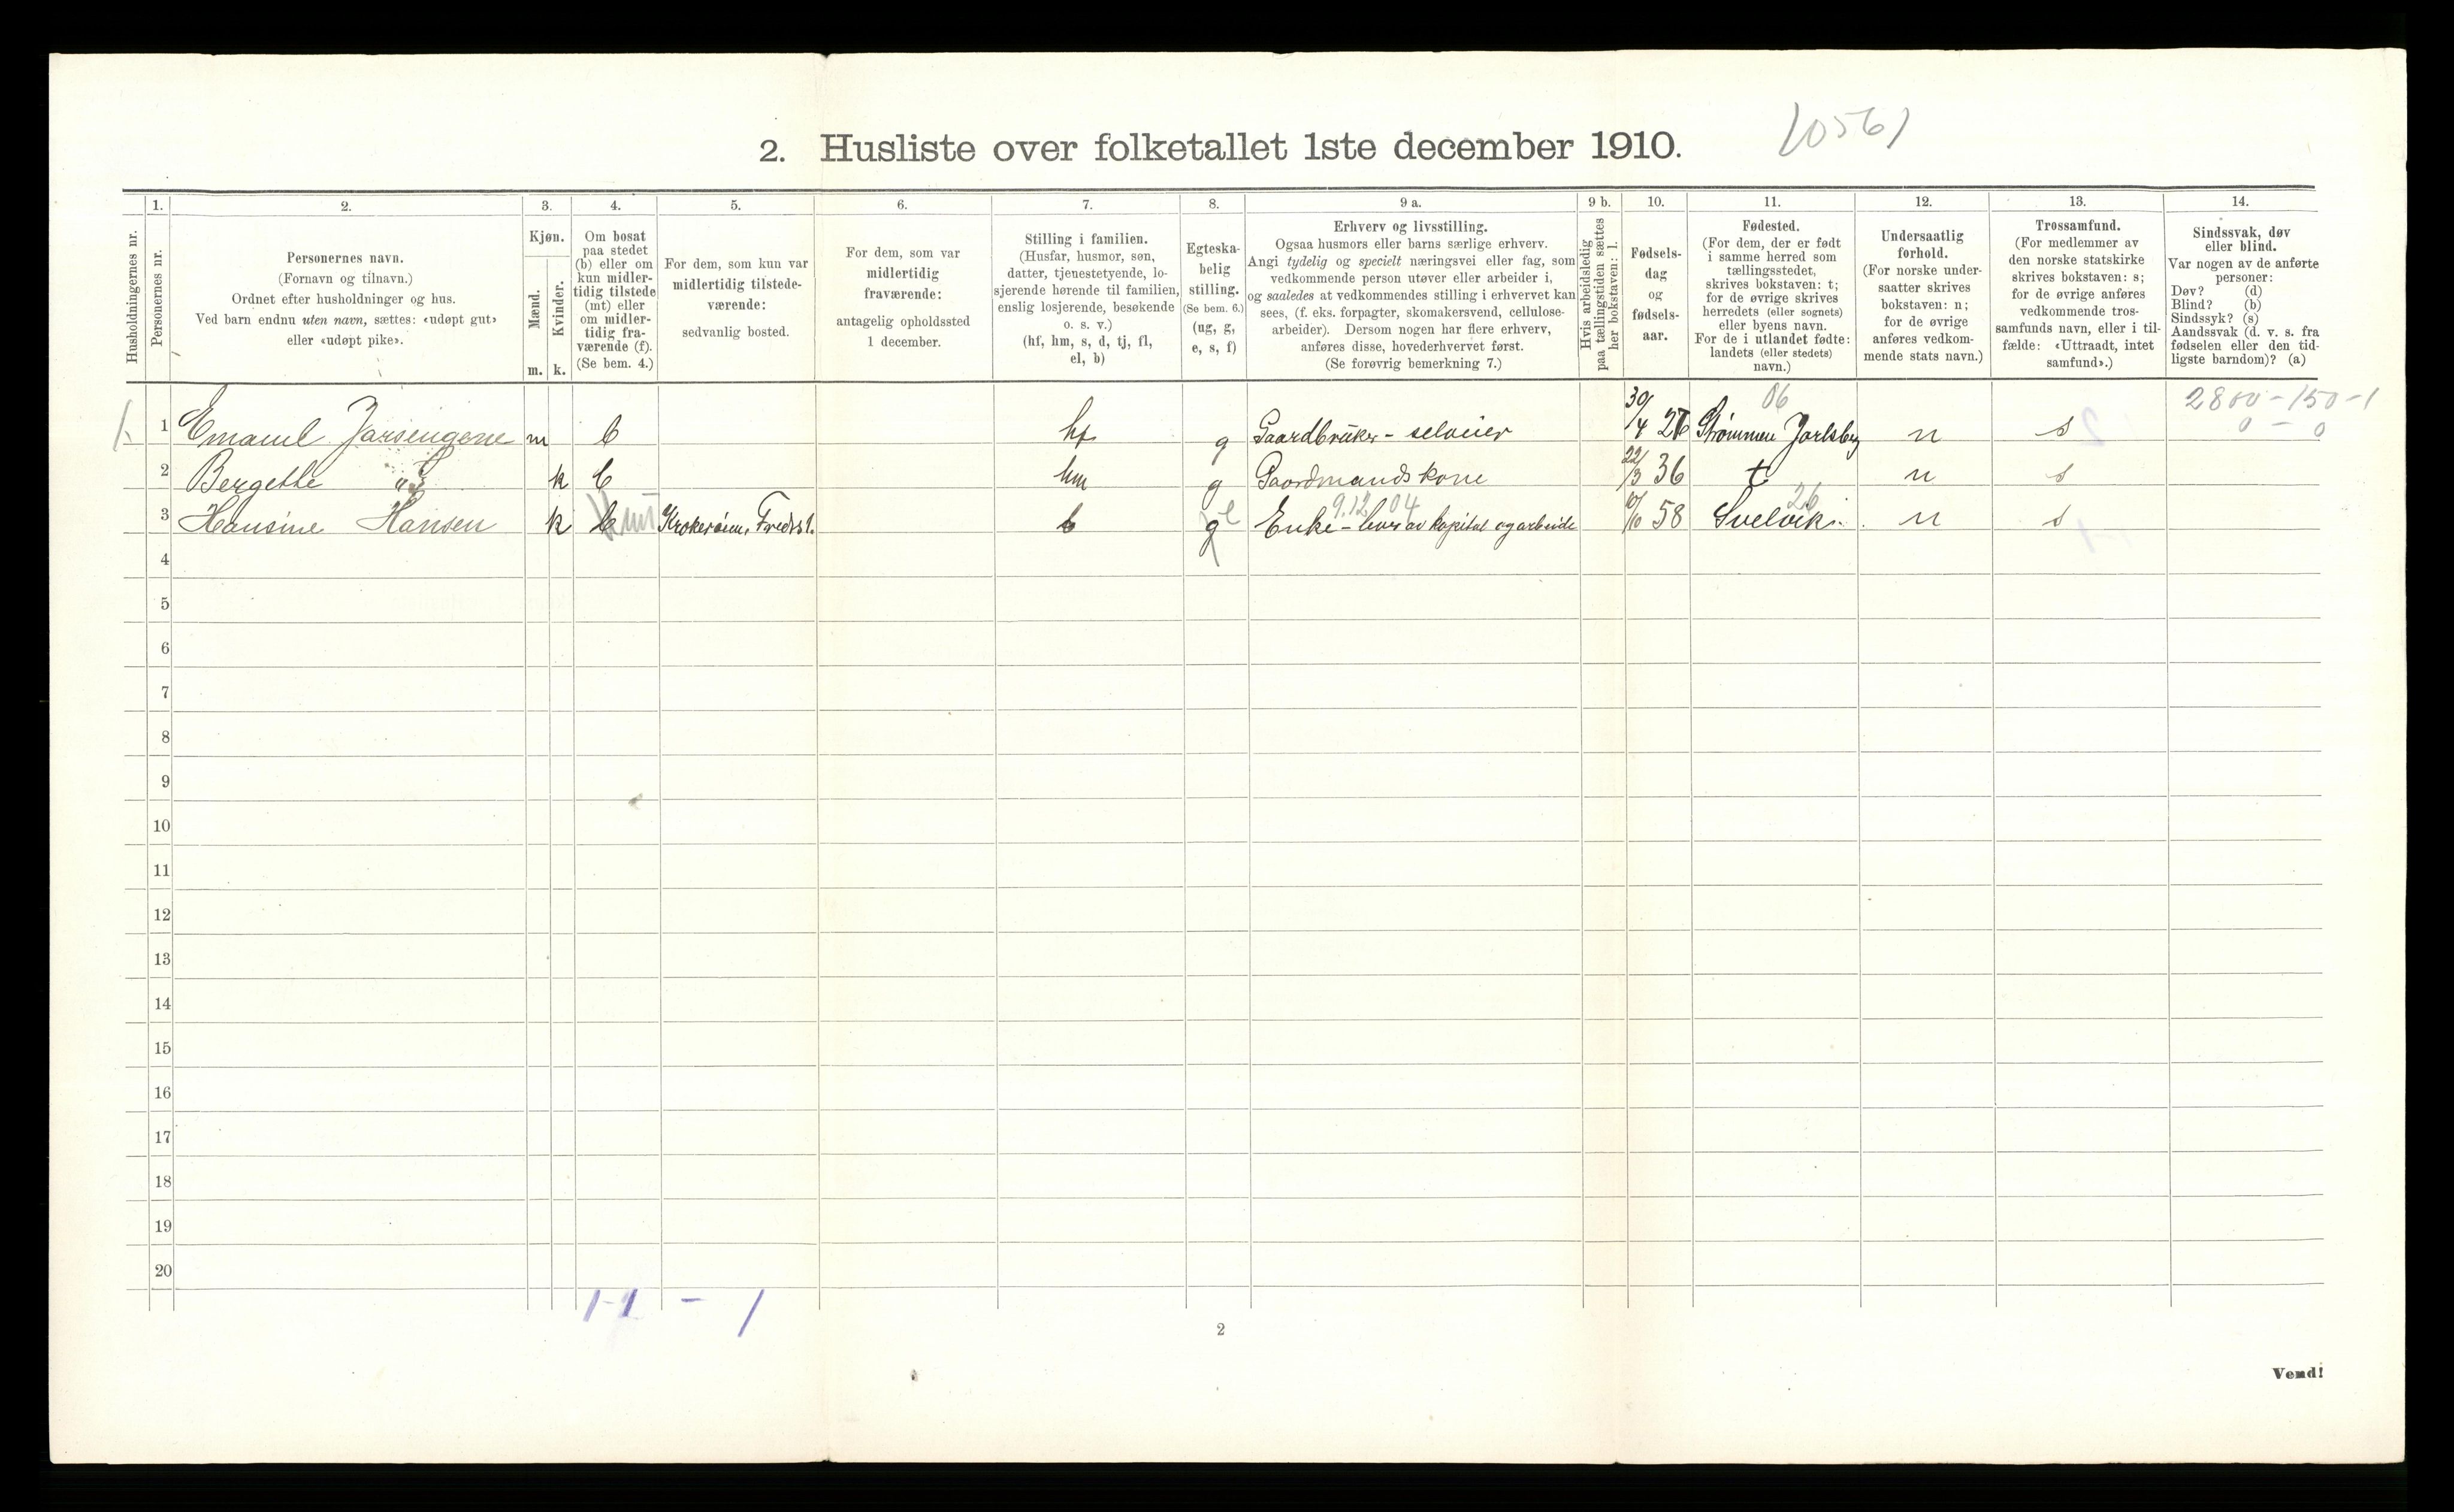 2. Husliste over folketallet 1ste december 1910.
Husholdningernes nr.
1.
Personernes nr.
2.
Personernes navn.
(Fornavn og tilnavn.)
Ordnet efter husholdninger og hus.
Ved barn endnu uten navn, sættes: «udøpt gut»
eller «udøpt pike».
3.
Kjøn.
Mænd.
Kvinder.
m. k.
4.
Om bosat
paa stedet
(b) eller om
kun midler-
tidig tilstede
(mt) eller
om midler-
tidig fra-
værende (f).
(Se bem. 4.)
5.
For dem, som kun var
midlertidig tilstede-
værende:
sedvanlig bosted.
6.
For dem, som var
midlertidig
fraværende:
antagelig opholdssted
1 december.
7.
Stilling i familien.
(Husfar, husmor, søn,
datter, tjenestetyende, lo-
sjerende hørende til familien,
enslig losjerende, besøkende
o. s. v.)
(hf, hm, s, d, tj, fl,
el, b)
8.
Egteska-
belig
stilling.
(Se bem. 6.)
(ug, g,
e, s, f)
9 a.
Erhverv og livsstilling.
Ogsaa husmors eller barns særlige erhverv.
Angi tydelig og specielt næringsvei eller fag, som
vedkommende person utøver eller arbeider i,
og saaledes at vedkommendes stilling i erhvervet kan
sees, (f. eks. forpagter, skomakersvend, cellulose-
arbeider). Dersom nogen har flere erhverv,
anføres disse, hovederhvervet først.
(Se forøvrig bemerkning 7.)
9 b.
Hvis arbeidsledig
paa tællingstiden sættes
her bokstaven: l.
10.
Fødsels-
dag
og
fødsels-
aar.
11.
Fødested.
(For dem, der er født
i samme herred som
tællingsstedet,
skrives bokstaven: t;
for de øvrige skrives
herredets (eller sognets)
eller byens navn.
For de i utlandet fødte:
landets (eller stedets)
navn.)
12.
Undersaatlig
forhold.
(For norske under-
saatter skrives
bokstaven: n;
for de øvrige
anføres vedkom-
mende stats navn.)
13.
Trossamfund.
(For medlemmer av
den norske statskirke
skrives bokstaven: s;
for de øvrige anføres
vedkommende tros-
samfunds navn, eller i til-
fælde: «Uttraadt, intet
samfund».)
14.
Sindssvak, døv
eller blind.
Var nogen av de anførte
personer:
Døv? (d)
Blind? (b)
Sindssyk? (s)
Aandssvak (d. v. s. fra
fødselen eller den tid-
ligste barndom)? (a)
06
2800-150-1
0 - 0
1 Emanuel m b hf g Gaardbruker - selveier 30/4 Strømmen Jarlsberg n s
2 Bergette " k b hm g Gaardmandskone 22/3 36 t n s
9.12.04
26
3 Hansine Hansen k b mt Krokerøien, Fredrst. b g e Enke - lever av kapital og arbeide 10/10 58 Svelvik. n s
4
5
6
7
8
9
10
11
12
13
14
15
16
17
18
19
20
1-1 - 1
2
Vend!